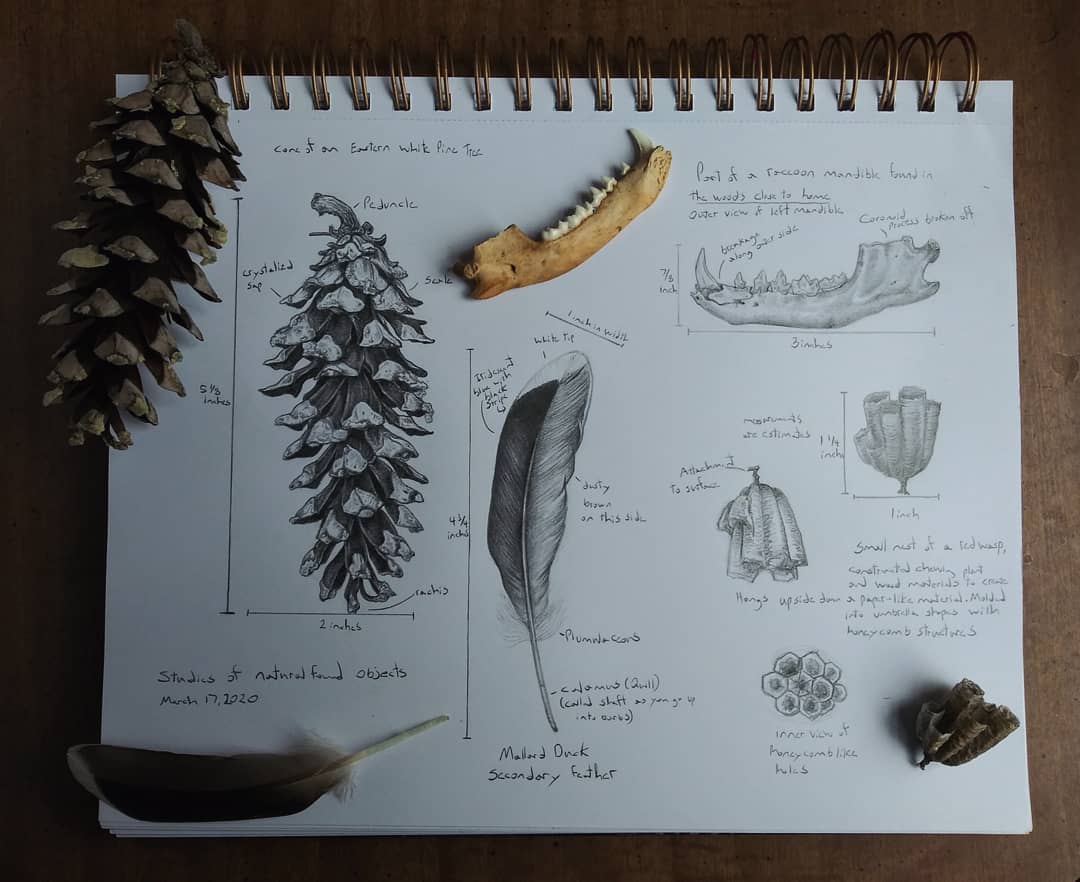 Cone of an Eastern White Pine Tree
Peduncle
crystalized
sap
Scale
5 1/3
inches
2 inches
rachis
Studies of natural found objects
March 17, 2020
1 inch in width
White Tip
Iridescent
blue with
black
stripe
dusty
brown
on this side
4 3/4
inches
Plumulaceous
calamus (Quill)
(called shaft as you go up
into barbs)
Mallard Duck
Secondary Feather
Part of a raccoon mandible found in
the woods close to home
Outer view of left mandible
breakage
along outer side
Coronoid
Process broken off
7/8
inch
3 inches
measurments
are estimates
1 1/4
inch
1 inch
Attachment
to surface
Hangs upside down
Small nest of a red wasp,
constructed chewing plant
and wood materials to create
a paper-like material. Molded
into umbrella shapes with
honeycomb structures
inner view of
honeycomb like
holes